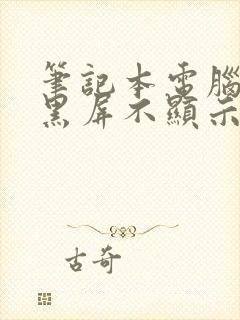 筆記本電腦
黑屏不顯示
古奇